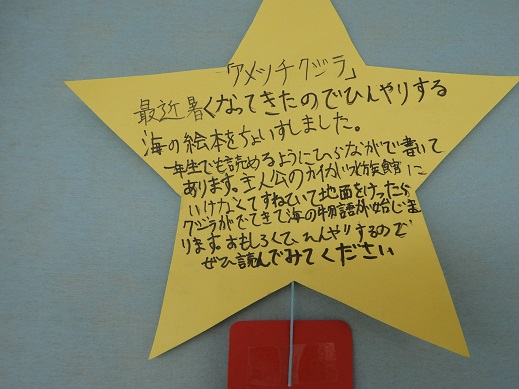 「アメツチクジラ」
最近暑くなってきたのでひんやりする
海の絵本をちょいすしました。
一年生でも読めるようにひらながで書いて
あります。主人公のカイカが水族館に
いけなくてすねていて地面をけったら
クジラがでてきて海の物語が始じま
ります。おもしろくて、ひんやりするので
ぜひ読んでみてください